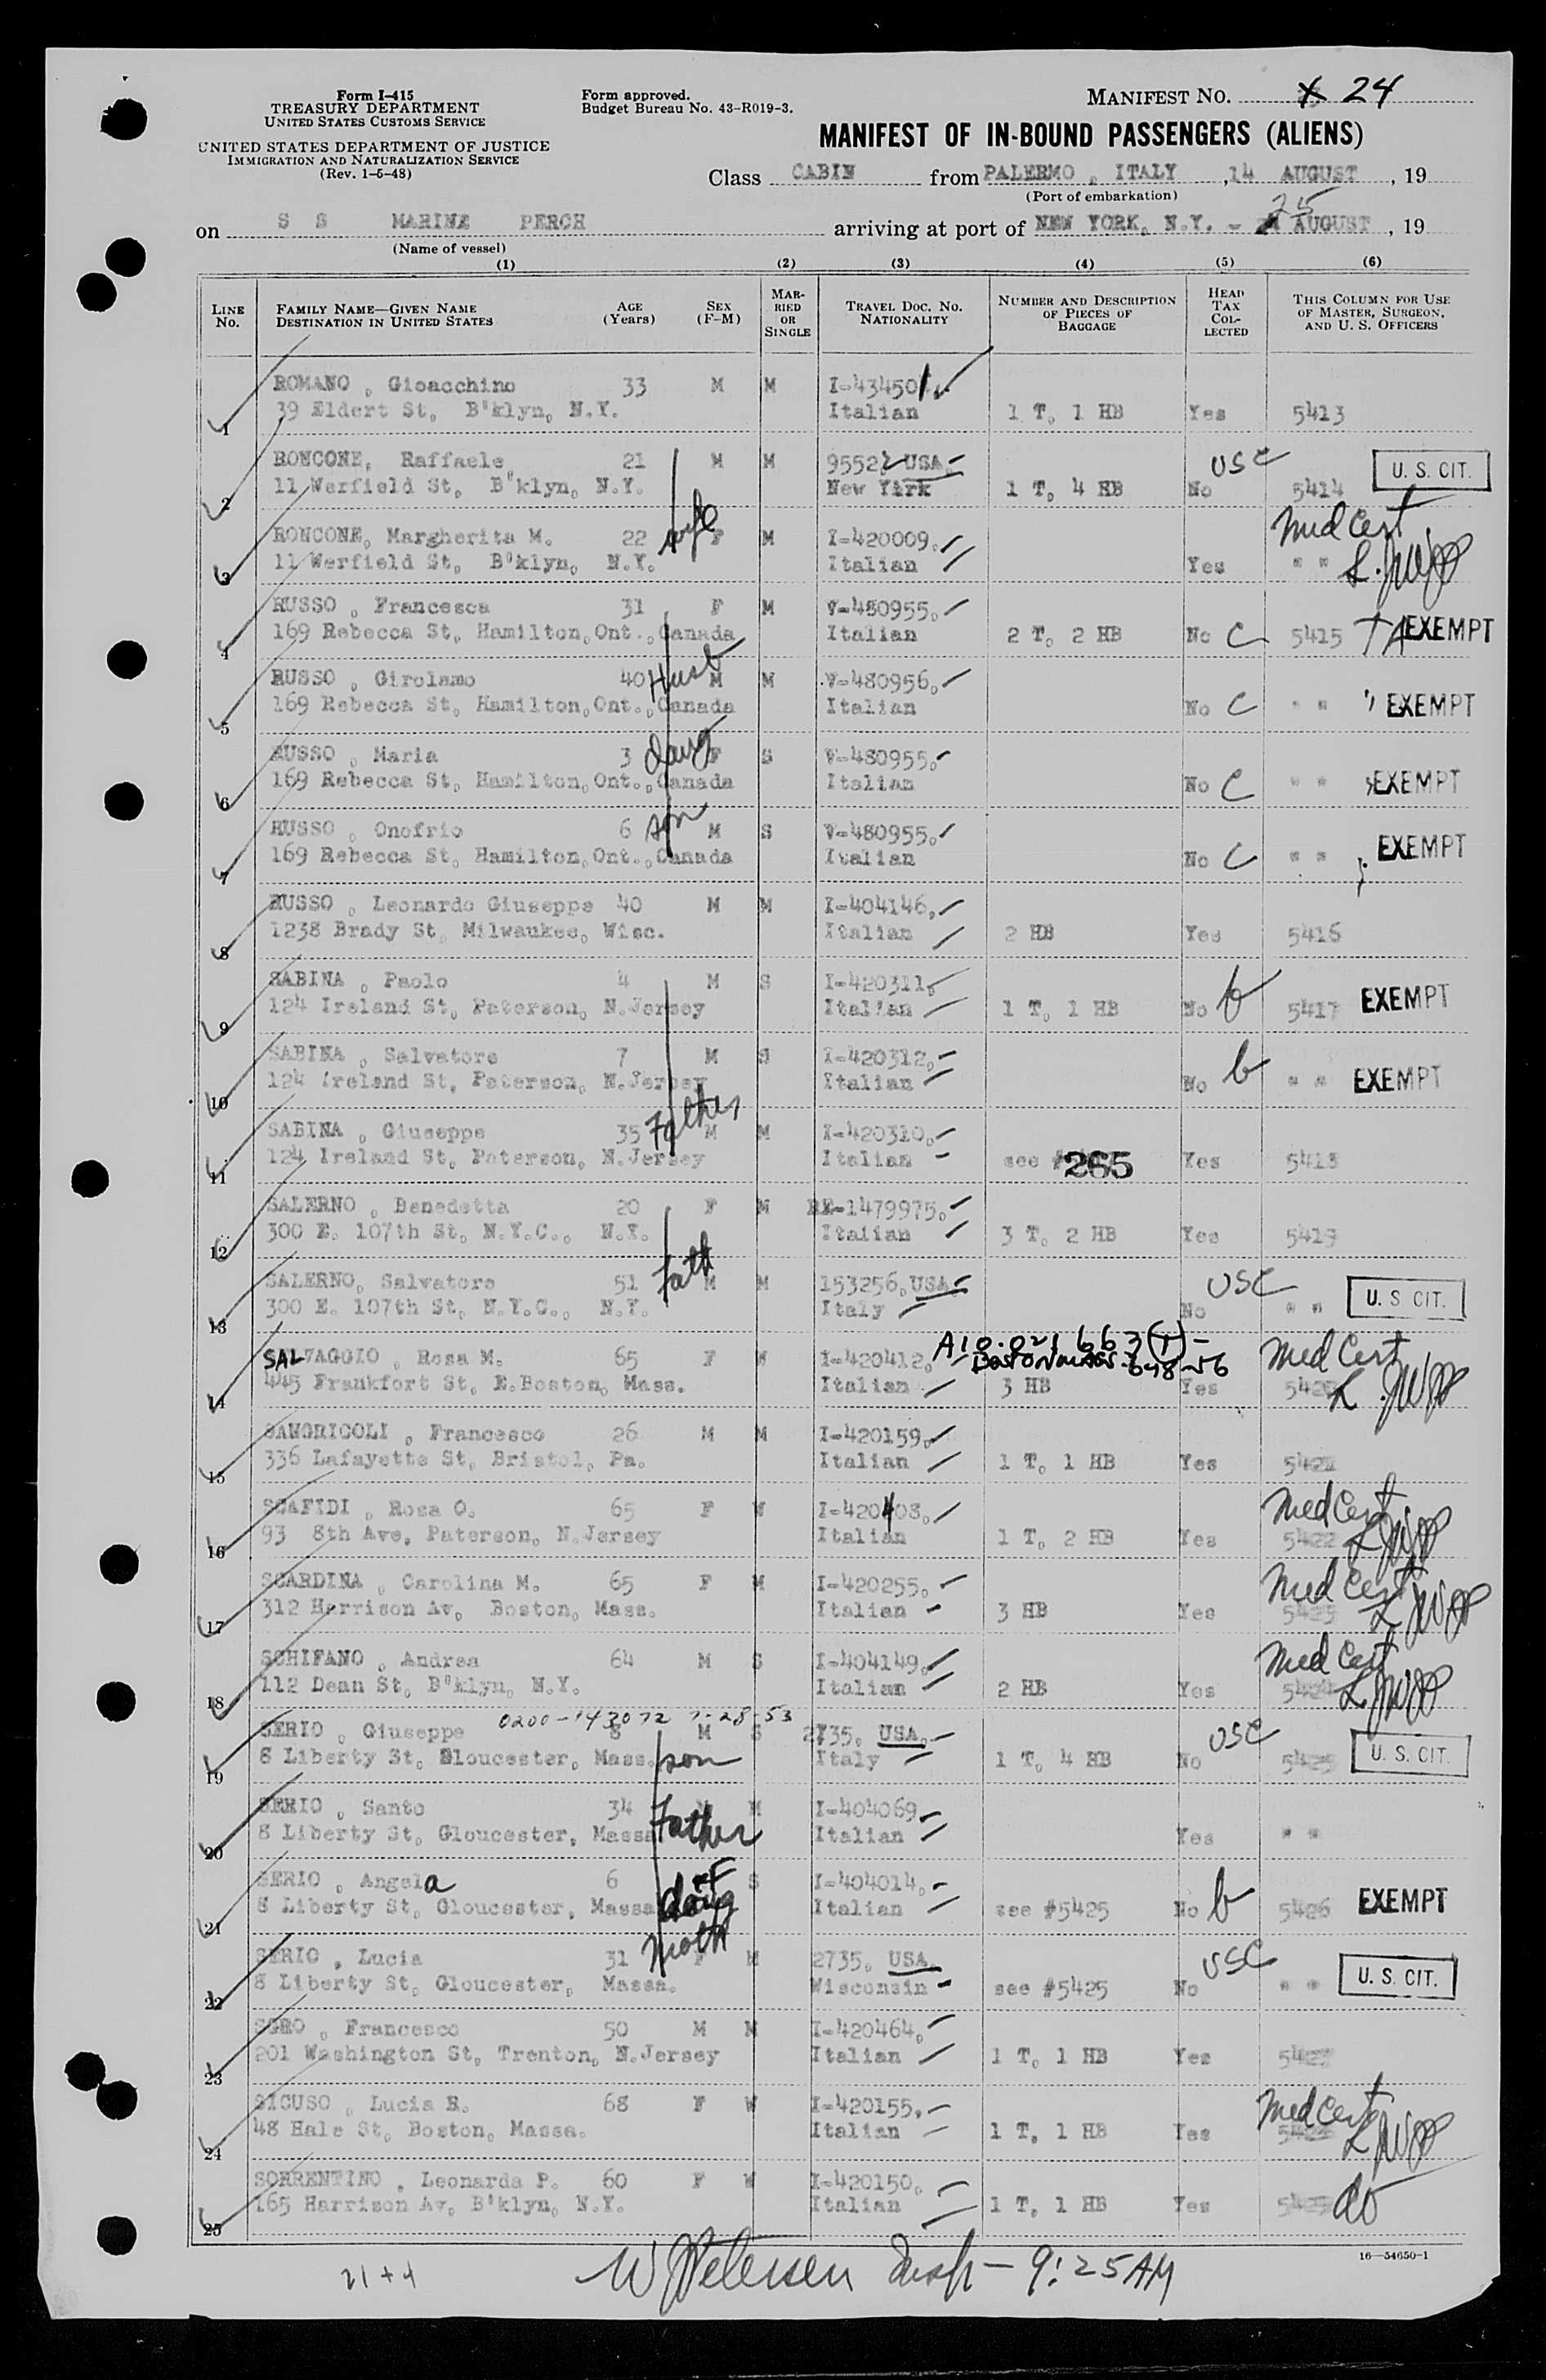 Form I-415
TREASURY DEPARTMENT
UNITED STATES CUSTOMS SERVICE
UNITED STATES DEPARTMENT OF JUSTICE
IMMIGRATION AND NATURALIZATION SERVICE
(Rev. 1-5-48)
Form approved.
Budget Bureau No. 43-R019-3.
MANIFEST NO. 24
MANIFEST OF IN-BOUND PASSENGERS (ALIENS)
Class CABIN from PALERMO, ITALY, 14 AUGUST, 19
(Port of embarkation)
on S S MARINE PERCH arriving at port of NEW YORK, N.Y. - 25 AUGUST, 19
(Name of vessel)
(1) (2) (3) (4) (5) (6)
LINE No. FAMILY NAME—GIVEN NAME DESTINATION IN UNITED STATES AGE (Years) SEX (F-M) MARRIED OR SINGLE TRAVEL DOC. NO. NATIONALITY NUMBER AND DESCRIPTION OF PIECES OF BAGGAGE HEAD TAX COLLECTED THIS COLUMN FOR USE OF MASTER, SURGEON, AND U. S. OFFICERS
ROMANO, Gioacchino 33 M M I-434501
1 39 Eldert St, B'klyn, N.Y. Italian 1 T, 1 HB Yes 5413
RONCONE, Raffaele 21 M M 9552 USA USC U. S. CIT.
2 11 Warfield St, B'klyn, N.Y. New York 1 T, 4 HB No 5414
RONCONE, Margherita M. 22 wife F M I-420009. Med Cert
3 11 Warfield St, B'klyn, N.Y. Italian Yes " "
RUSSO, Francesca 31 F M V-480955.
4 169 Rebecca St, Hamilton, Ont., Canada Italian 2 T, 2 HB No C 5415 TA EXEMPT
RUSSO, Girolamo 40 Husb M M V-480956.
5 169 Rebecca St, Hamilton, Ont., Canada Italian No C " " " EXEMPT
RUSSO, Maria 3 daug F S V-480955.
6 169 Rebecca St, Hamilton, Ont., Canada Italian No C " " EXEMPT
RUSSO, Onofrio 6 son M S V-480955.
7 169 Rebecca St, Hamilton, Ont., Canada Italian No C " " EXEMPT
RUSSO, Leonardo Giuseppe 40 M M I-404146.
8 1238 Brady St, Milwaukee, Wisc. Italian 2 HB Yes 5416
SABINA, Paolo 4 M S I-420311.
9 124 Ireland St, Paterson, N.Jersey Italian 1 T, 1 HB No b 5417 EXEMPT
SABINA, Salvatore 7 M S I-420312.
10 124 Ireland St, Paterson, N.Jersey Italian No b " " EXEMPT
SABINA, Giuseppe 35 Father M M I-420310.
11 124 Ireland St, Paterson, N.Jersey Italian see #265 Yes 5418
SALERNO, Benedetta 20 F M RE-1479975.
12 300 E. 107th St, N.Y.C., N.Y. Italian 3 T, 2 HB Yes 5419
SALERNO, Salvatore 51 Fath M M 153256. USA USC
13 300 E. 107th St, N.Y.C., N.Y. Italy No " " U. S CIT.
A10.021 663(T)-
SALVAGGIO, Rosa M. 65 F W I-420412. Med Cert
14 445 Frankfort St, E.Boston, Mass. Italian 3 HB Yes 5420
SANGRICOLI, Francesco 26 M M I-420159.
15 336 Lafayette St, Bristol, Pa. Italian 1 T, 1 HB Yes 5421
SCAFIDI, Rosa O. 65 F W I-420408. Med Cert
16 93 8th Ave, Paterson, N.Jersey Italian 1 T, 2 HB Yes 5422
SCARDINA, Carolina M. 65 F W I-420255. Med Cert
17 312 Harrison Av, Boston, Mass. Italian 3 HB Yes 5423
SCHIFANO, Andrea 64 M S I-404149. Med Cert
18 112 Dean St, B'klyn, N.Y. Italian 2 HB Yes 5424
0200-143072 7-28-53
SERIO, Giuseppe 8 M S 2735. USA. USC
19 8 Liberty St, Gloucester, Mass. son Italy 1 T, 4 HB No 5425 U. S. CIT.
SERIO, Santo 34 M M I-404069
20 8 Liberty St, Gloucester, Massa Father Italian Yes " "
SERIO, Angela 6 F S I-404014.
21 8 Liberty St, Gloucester, Massa daug Italian see #5425 No b 5426 EXEMPT
SERIO, Lucia 31 Moth F M 2735. USA. USC
22 8 Liberty St, Gloucester, Massa. Wisconsin see #5425 No " " U. S. CIT.
SGRO, Francesco 50 M M I-420464.
23 201 Washington St, Trenton, N.Jersey Italian 1 T, 1 HB Yes 5427
SICUSO, Lucia E. 68 F W I-420155. Med Cert
24 48 Hale St, Boston, Massa. Italian 1 T, 1 HB Yes 5428
SORRENTINO, Leonarda P. 60 F W I-420150.
25 165 Harrison Av, B'klyn, N.Y. Italian 1 T, 1 HB Yes 5429 do
16—54650-1
21 + 4 W Petersen Insp - 9:25 AM